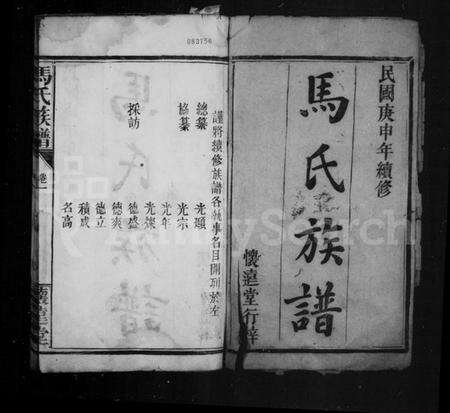 民國庚申年續修
馬氏族譜
懷遠堂行梓
083756
謹將續修族譜各執事名目開列於左
總纂 光顯
協纂 光宗
光年
採訪 光燦
德盛
德爽
德立
積成
名高
馬氏族譜
卷一
懷遠堂
FamilySearch